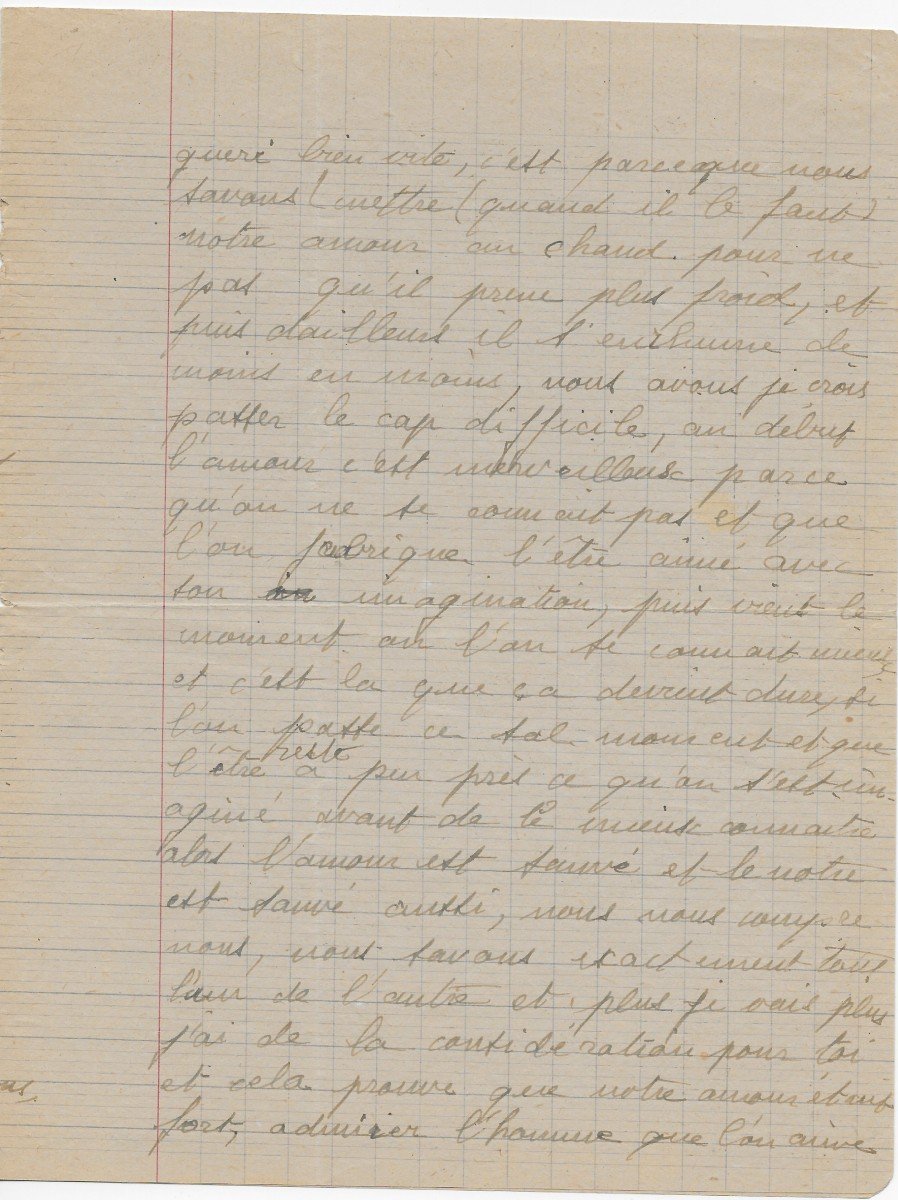 gueri bien vite, c'est parceque nous
savons (mettre (quand il le faut)
notre amour au chaud pour ne
pas qu'il prene plus froid, et
puis dailleurs il s'enrhume de
moins en moins, nous avons je crois
passer le cap difficile, au début
l'amour c'est merveilleux parce
qu'on ne se connait pas et que
l'on fabrique l'être aimé avec
son imagination, puis vient le
moment ou l'on se connait mieux
et c'est la que ça devient dure, si
l'on passe ce sal moment et que
l'être reste à peu près ce qu'on s'est im-
aginé avant de le mieux connaitre
alors l'amour est sauvé et le notre
est sauvé aussi, nous nous compre
nons, nous savons exactement tous
l'un de l'autre et plus je vais plus
j'ai de la considération pour toi
et cela prouve que notre amour était
fort, admirer l'homme que l'on aime